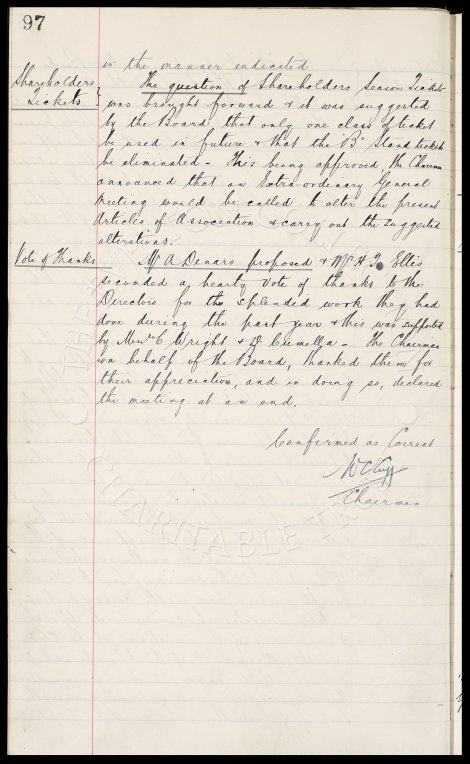 97
in the manner indicated
Shareholders Tickets
The question of Shareholders Season Tickets
was brought forward & it was suggested
by the Board that only one class of ticket
be used in future & that the "B" Stand tickets
be eliminated - This being approved, the Chairman
announced that an Extra-ordinary General
Meeting would be called to alter the present
Articles of Association & carry out the suggested
alterations.
Vote of Thanks
Mr A Denaro proposed & Mr H. J. Ellis
seconded a hearty vote of thanks to the
Directors for the splendid work they had
done during the past year & this was supported
by Messrs C Wright & Cumella - The Chairman
on behalf of the Board, thanked them for
their appreciation, and in doing so, declared
the meeting at an end.
Confirmed as Correct
W C Cuff
Chairman
CHARITABLE TR